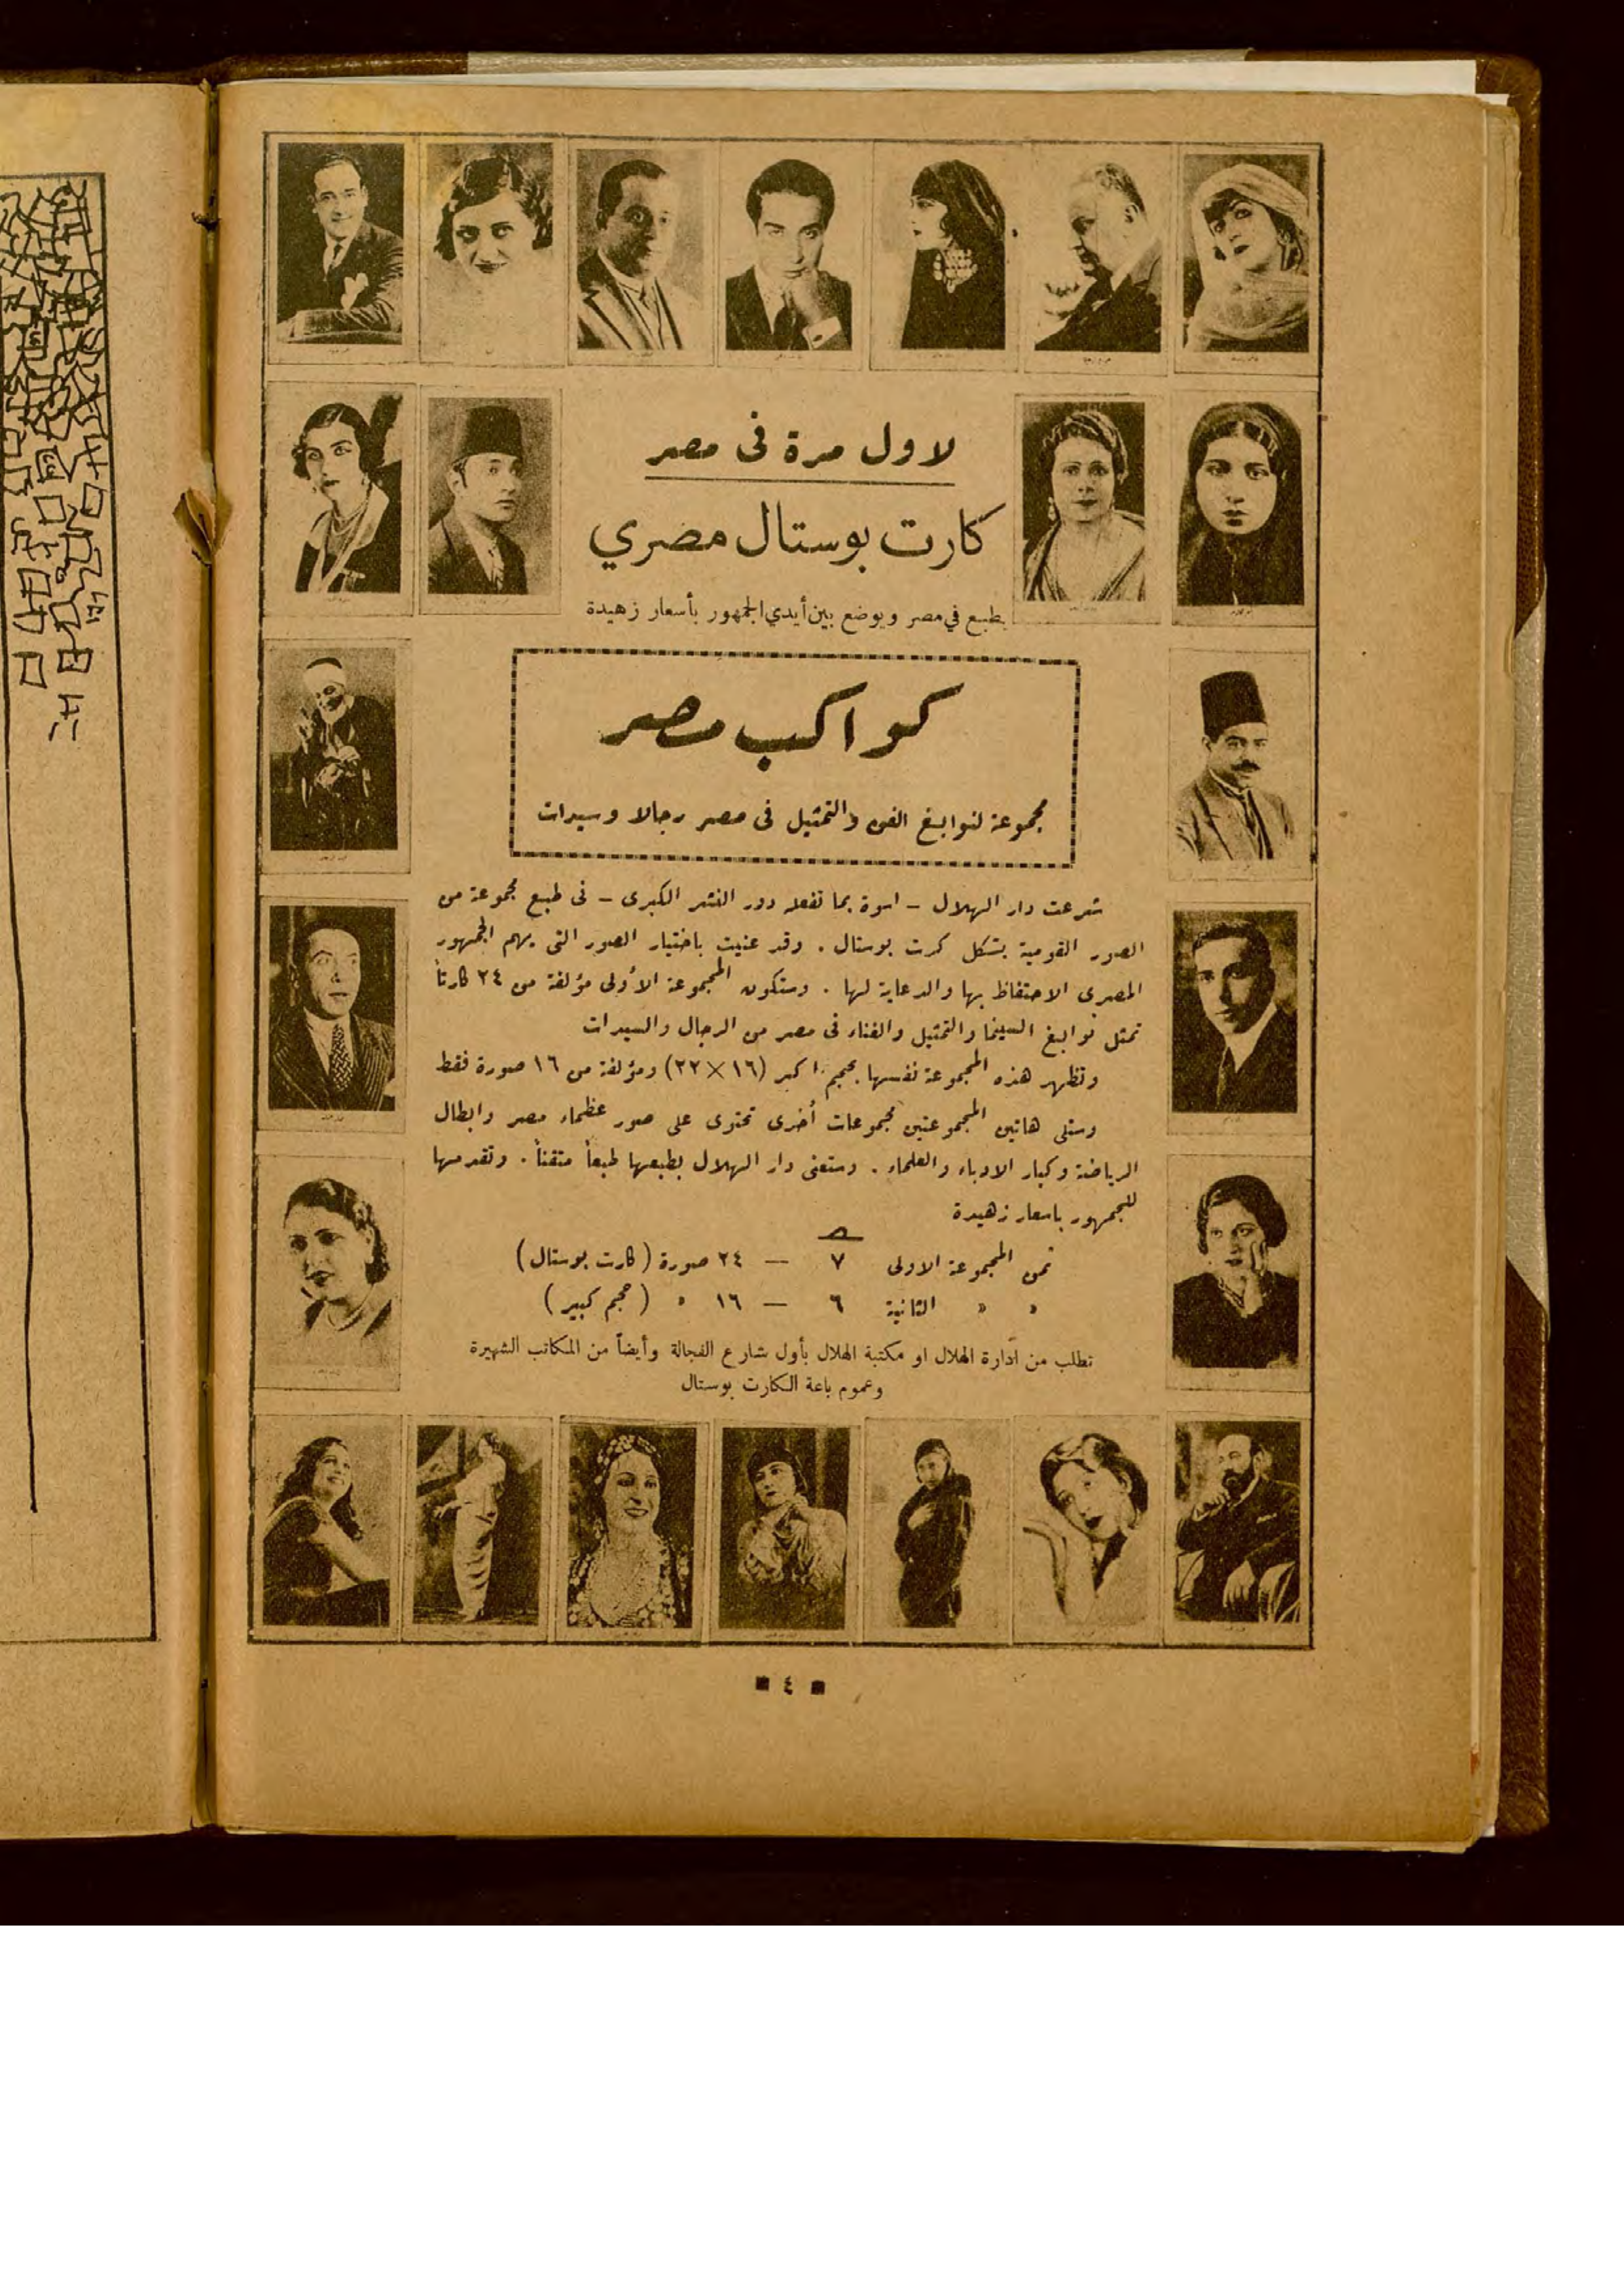 لاول مرة فى مصر
كارت بوستال مصري
يطبع في مصر ويوضع بين أيدي الجمهور بأسعار زهيدة
كواكب مصر
مجموعة لنوابغ الفن والتمثيل فى مصر رجالا وسيدات
شرعت دار الهلال - اسوة بما تفعله دور النشر الكبرى - فى طبع مجموعة من
الصور القومية بشكل كرت بوستال . وقد عنيت باختيار الصور التى يهم الجمهور
المصرى الاحتفاظ بها والدعاية لها . وستكون المجموعة الأولى مؤلفة من ٢٤ كارتاً
تمثل نوابغ السينما والتمثيل والغناء فى مصر من الرجال والسيدات
وتظهر هذه المجموعة نفسها بحجم اكبر (١٦×٢٢) ومؤلفة من ١٦ صورة فقط
وستلى هاتين المجموعتين مجموعات أخرى تحتوى على صور عظماء مصر وابطال
الرياضة وكبار الادباء والعلماء . وستعنى دار الهلال بطبعها طبعاً متقناً . وتقدمها
للجمهور باسعار زهيدة
ثمن المجموعة الاولى ٧ — ٢٤ صورة ( كارت بوستال )
» » الثانية ٦ — ١٦ » ( حجم كبير )
تطلب من ادارة الهلال او مكتبة الهلال بأول شارع الفجالة وأيضاً من المكاتب الشهيرة
وعموم باعة الكارت بوستال
٤